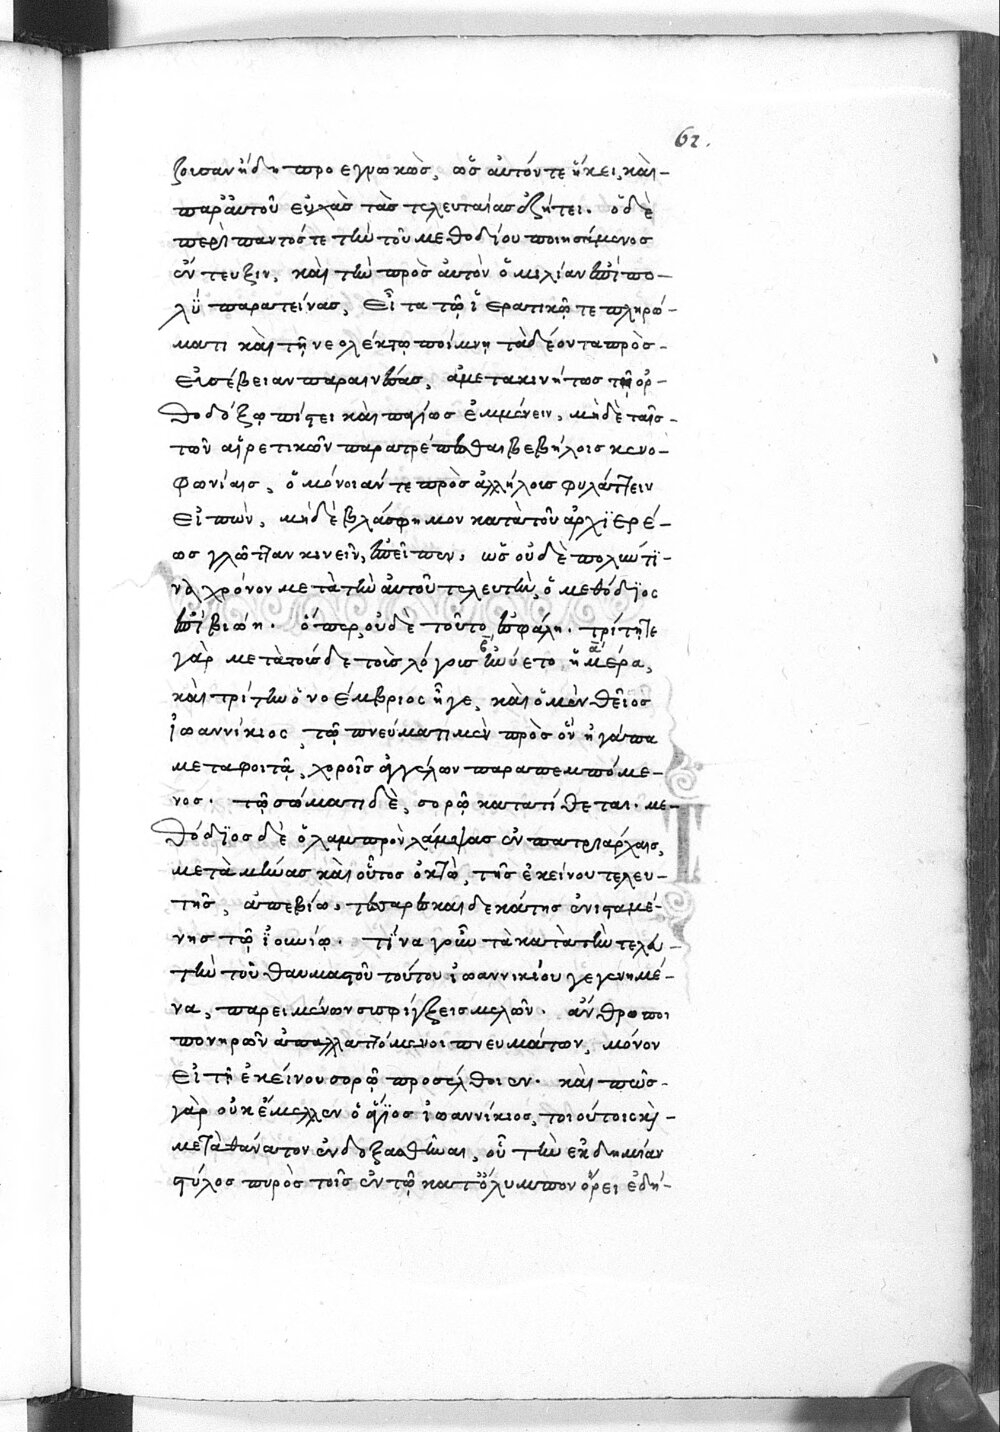 62.
ζουσαν ἤδη προεγνωκὼς, ὡς αὐτόν τε ἥκει, καὶ
παρ' αὐτοῦ εὐχὰς τὰς τελευταίας ἐζήτει. ὁ δὲ
περὶ παντός τε τὴν τοῦ μεθοδίου ποιησάμενος
ἔντευξιν, καὶ τὴν πρὸς αὐτὸν ὁμιλίαν ἐπιπο-
λὺ παρατείνας, εἶτα τῷ ἱερατικῷ τε πληρώ-
ματι καὶ τῇ νεολέκτῳ ποίμνῃ τὰ δέοντα πρὸς
εὐσέβειαν παραινέσας, ἀμετακινήτως τῇ ὀρ-
θοδόξῳ πίστει καὶ παγίως ἐμμένειν, μὴ δὲ ταῖς
τῶν αἱρετικῶν παρατρέπεσθαι βεβήλοις κενο-
φωνίαις, ὁμόνοιάν τε πρὸς ἀλλήλοις φυλάττειν
εἰπὼν, μὴ δὲ βλάσφημον κατὰ τοῦ ἀρχιερέ-
ως γλῶτταν κινεῖν, ἐπεῖπεν, ὡς οὐδὲ πολύν τι-
να χρόνον μετὰ τὴν αὐτοῦ τελευτὴν, ὁ μεθόδιος
ἐπιβιώῃ. ὅπερ, οὐδὲ τοῦτο ἐσφάλη. τρίτη τε
γὰρ μετὰ τούσδε τοὺς λόγους ἐξηνύετο ἡμέρα,
καὶ τρίτην ὁ νοέμβριος ἦγε, καὶ ὁ μὲν θεῖος
ἰωαννίκιος, τῷ πνεύματι μὲν πρὸς ὃν ἠγάπα
μεταφοιτᾷ, χοροῖς ἀγγέλων παραπεμπόμε-
νος. τῷ σώματι δὲ, σορῷ κατατίθεται. με-
θόδιος δὲ ὁ λαμπρὸν λάμψας ἐν πατριάρχαις,
μετὰ μῆνας καὶ οὗτος ὀκτὼ, τῆς ἐκείνου τελευ-
τῆς, ἀπεβίω, τεσσαρεσκαιδεκάτης ἐνισταμέ-
νης τῷ ἰουνίῳ. τίνα γοῦν τὰ κατὰ τὴν τελευ-
τὴν τοῦ θαυμαστοῦ τούτου ἰωαννικίου γεγενημέ-
να, παρειμένων συσφίγξεις μελῶν. ἄνθρωποι
πονηρῶν ἀπαλλαττόμενοι πνευμάτων, μόνον
εἰ τῇ ἐκείνου σορῷ προσέλθοιεν. καὶ πῶς
γὰρ οὐκ ἔμελλεν ὁ ἅγιος ἰωαννίκιος, τοιούτοις καὶ
μετὰ θάνατον ἐνδοξασθῆναι, οὗ τὴν ἐκδημίαν
στύλος πυρὸς τοῖς ἐν τῷ κατ' ὄλυμπον ὄρει ἐδή-